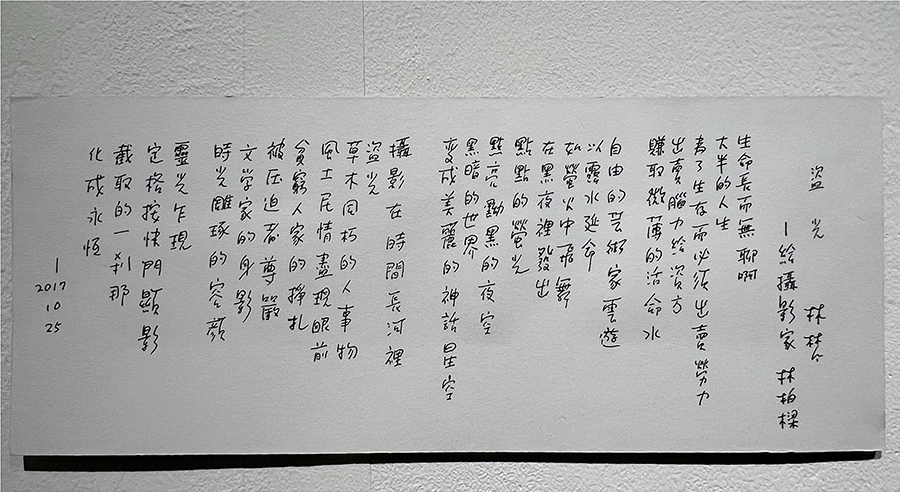 盜光 林梵
—給攝影家 林柏樑
生命長而無聊啊
大半的人生
為了生存而必須出賣勞力
出賣腦力給資方
賺取微薄的活命水
自由的芸術家雲遊
以露水延命
如螢火中飛舞
在黑夜裡發出
點點的螢光
點亮黝黑的夜空
黑暗的世界
变成美麗的神話星空
攝影在時間長河裡
盜光
草木同朽的人事物
風土民情盡現眼前
貧窮人家的掙扎
被压迫者尊嚴
文学家的身影
時光雕琢的容顏
靈光乍現
定格按快門顯影
截取的一剎那
化成永恆
—
2017
10
25